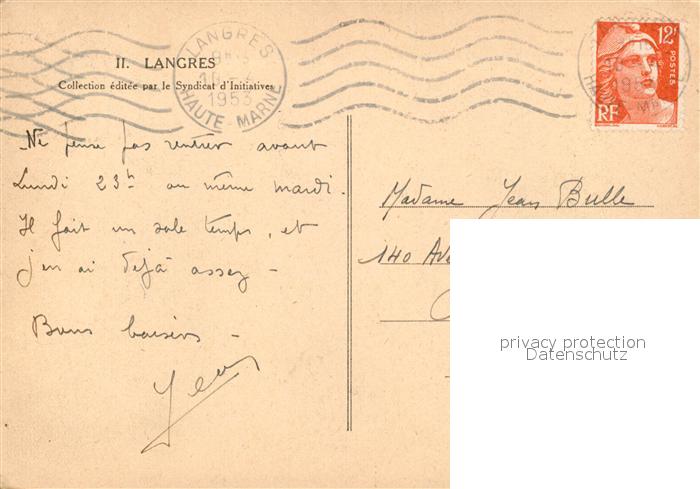 II. LANGRES
Collection éditée par le Syndicat d'Initiatives
LANGRES
1953
HAUTE-MARNE
12F
POSTES
RF
Ne pense pas rentrer avant
Lundi 23h ou même mardi.
Il fait un sale temps, et
j'en ai déjà assez -
Bons baisers -
Jean
Madame Jean Bulle
140 Ave
privacy protection
Datenschutz